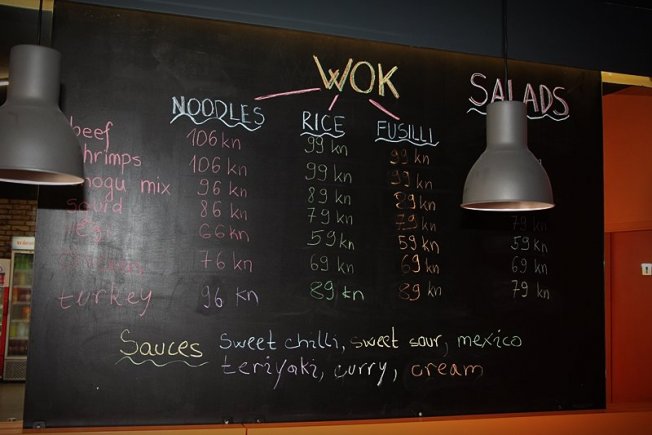 WOK SALADS
NOODLES RICE FUSILLI
beef 106 kn 99 kn 99 kn
shrimps 106 kn 99 kn 99 kn
mix 96 kn 89 kn 89 kn
86 kn 79 kn 79 kn 79 kn
66 kn 59 kn 59 kn 59 kn
76 kn 69 kn 69 kn 69 kn
turkey 96 kn 89 kn 89 kn 79 kn
Sauces sweet chilli, sweet sour, mexico
teriyaki, curry, cream